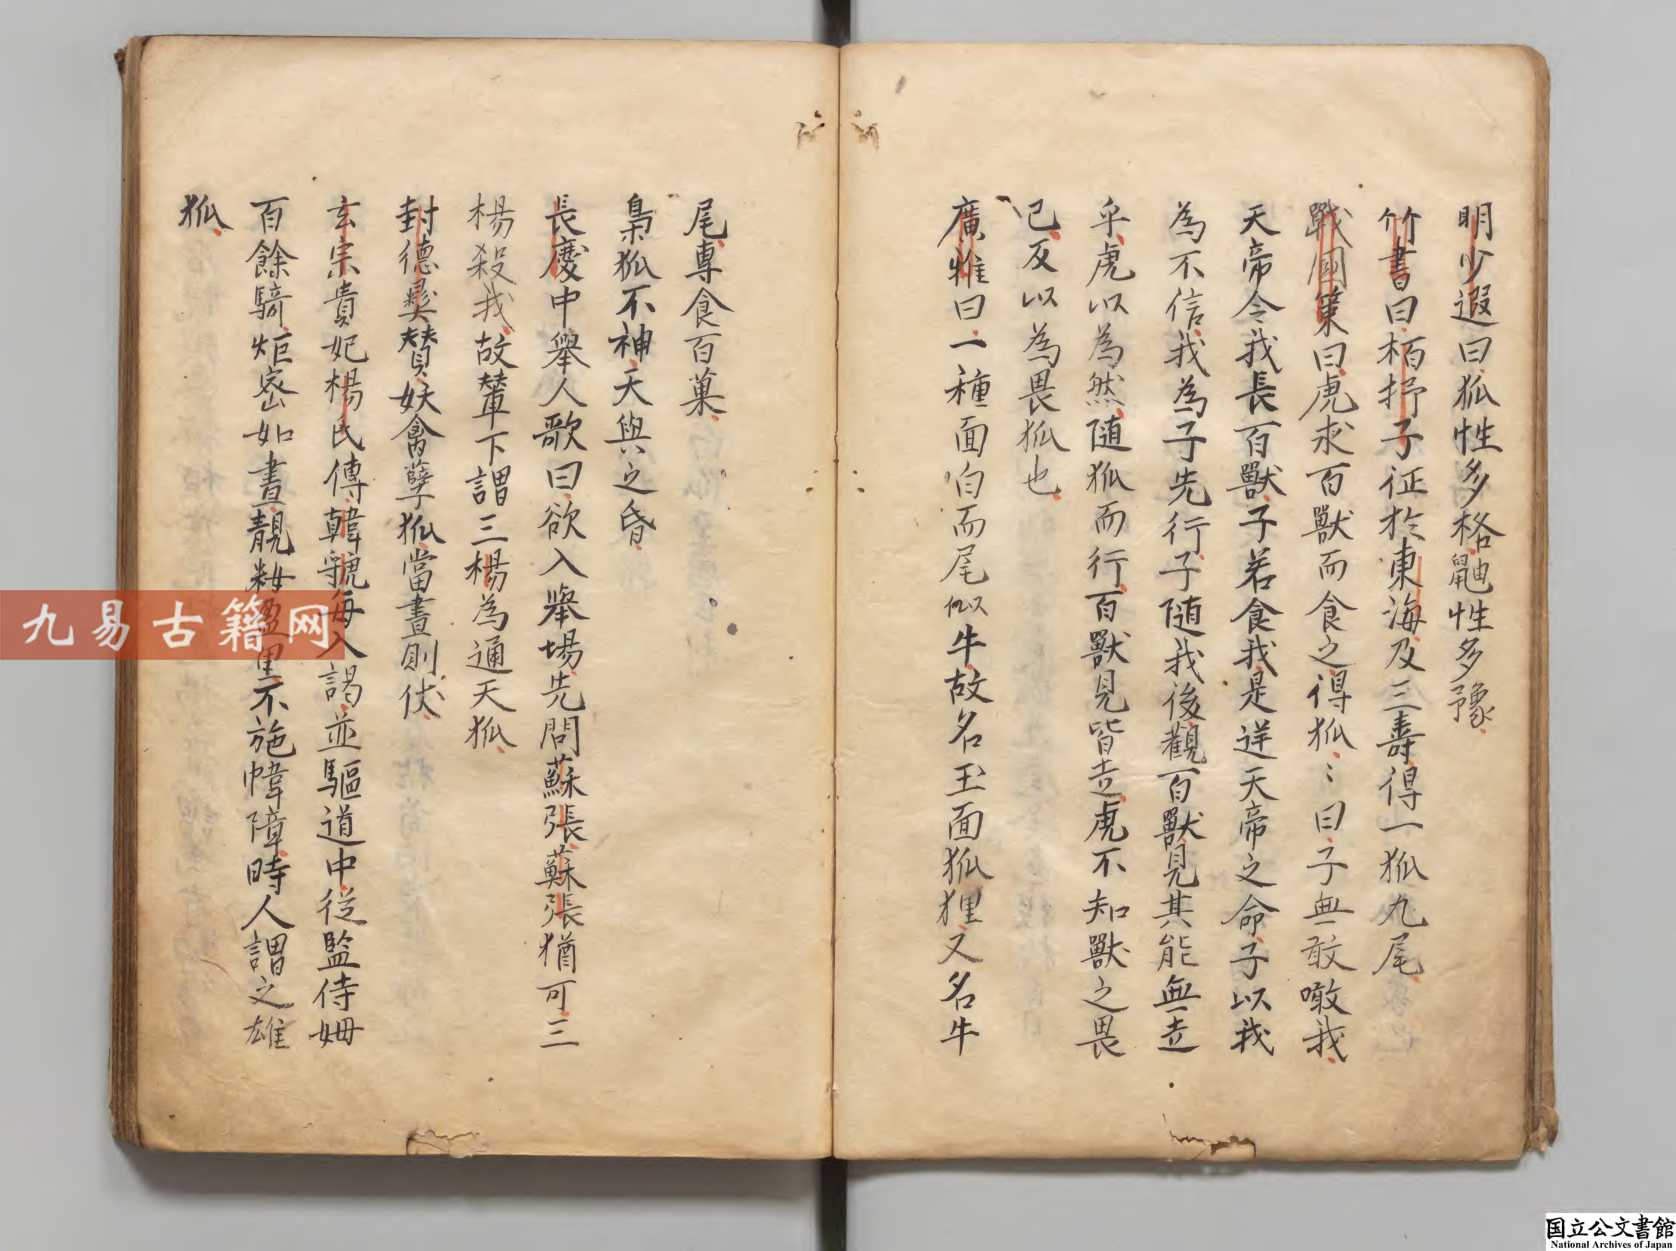 明少遐曰狐性多格鼬性多豫
竹書曰栢抒子征於東海及三壽得一狐九尾
戰國策曰虎求百獸而食之得狐〻曰子無敢噉我
天帝令我長百獸子若食我是逆天帝之命子以我
為不信我為子先行子隨我後觀百獸見其能無走
乎虎以為然隨狐而行百獸見皆走虎不知獸之畏
己反以為畏狐也
廣雅曰一種面白而尾似牛故名玉面狐狸又名牛
尾專食百菓
梟狐不神天與之昏
長慶中舉人歌曰欲入舉場先問蘇張蘇張猶可三
楊殺我故輦下謂三楊為通天狐
封德彝贊妖禽孽狐當晝則伏
玄宗貴妃楊氏傳韓虢每入謁並驅道中從監侍姆
百餘騎炬密如晝靚粧盈里不施幃障時人謂之雄
狐
九易古籍网
国立公文書館
National Archives of Japan